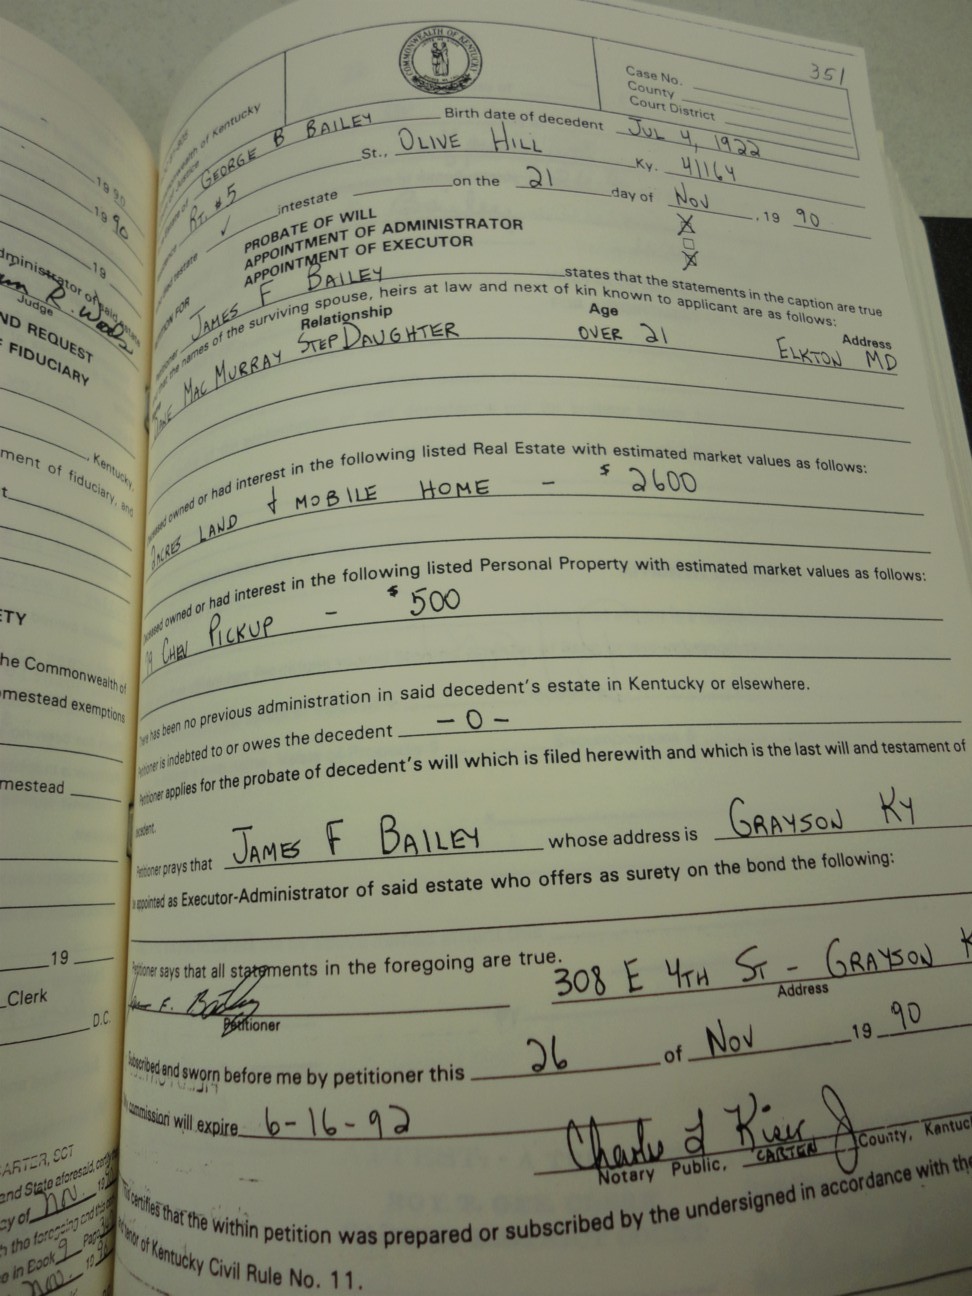 19 90
19 90
19
Administrator of said estate
Judge
ND REQUEST
F FIDUCIARY
, Kentucky,
ment of fiduciary, and
t
ETY
he Commonwealth of
omestead exemptions
mestead
19
Clerk
D.C.
CARTER, SCT
and State aforesaid, certify
cy of Nov 19
h the foregoing and this
e in Book 9 Page
Nov. 19 90
COMMONWEALTH OF KENTUCKY
351
Case No.
County
Court District
wealth of Kentucky
of Justice
GEORGE B BAILEY Birth date of decedent JUL 4, 1922
Rt. #5 St., OLIVE HILL Ky. 41164
testate ✓ intestate on the 21 day of Nov , 19 90
PROBATE OF WILL X
APPOINTMENT OF ADMINISTRATOR □
APPOINTMENT OF EXECUTOR X
TION FOR
JAMES F BAILEY states that the statements in the caption are true
the names of the surviving spouse, heirs at law and next of kin known to applicant are as follows:
Relationship Age Address
MAC MURRAY STEP DAUGHTER OVER 21 ELKTON MD
owned or had interest in the following listed Real Estate with estimated market values as follows:
ACRES LAND & MOBILE HOME - $ 2600
owned or had interest in the following listed Personal Property with estimated market values as follows:
CHEV PICKUP - $ 500
has been no previous administration in said decedent's estate in Kentucky or elsewhere.
Petitioner is indebted to or owes the decedent - 0 -
Petitioner applies for the probate of decedent's will which is filed herewith and which is the last will and testament of
decedent.
Petitioner prays that JAMES F BAILEY whose address is GRAYSON KY
be appointed as Executor-Administrator of said estate who offers as surety on the bond the following:
Petitioner says that all statements in the foregoing are true.
F. Bailey 308 E 4TH ST - GRAYSON K
Petitioner Address
Subscribed and sworn before me by petitioner this 26 of Nov 19 90
commission will expire 6-16-92
Charles L Kiser Jr
Notary Public, CARTER County, Kentuc
This certifies that the within petition was prepared or subscribed by the undersigned in accordance with the
tenor of Kentucky Civil Rule No. 11.